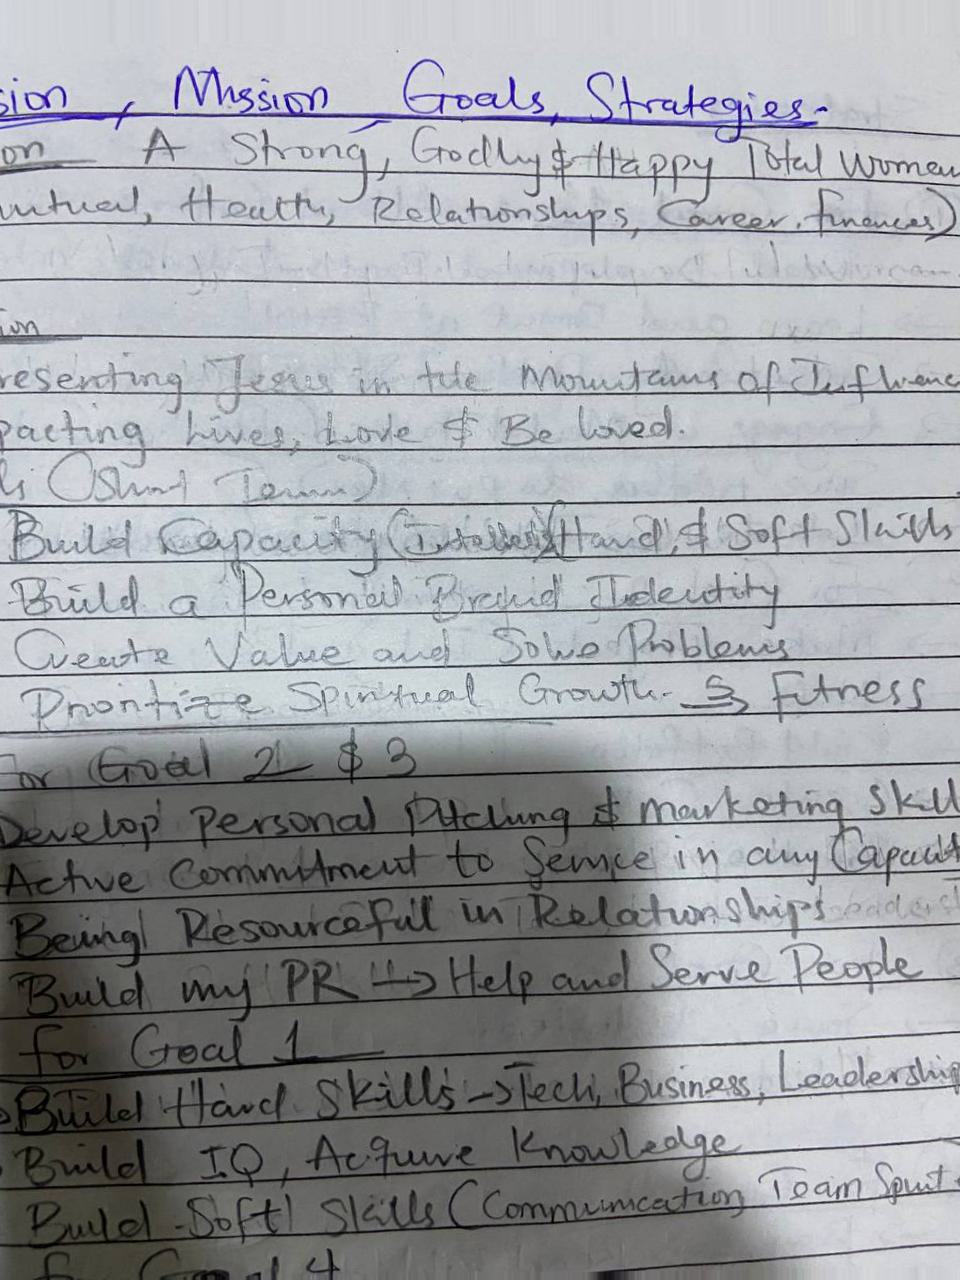 sion, Mission Goals, Strategies-
on A Strong, Godly & Happy Total Women
ritual, Health, Relationships, Career, finances)
ion
resenting Jesus in the Mountains of Influenc
pacting Lives, Love & Be loved.
ls (Short Term)
Build Capacity (Hard, & Soft Skills
Build a Personal Brand Identity
Create Value and Solve Problems
Prioritize Spiritual Growth. Fitness
For Goal 2 & 3
Develop Personal Pitching & Marketing Skill
Active Commitment to Service in any Capacit
Being Resourceful in Relationships
Build my PR → Help and Serve People
for Goal 1
Build Hard Skills → Tech, Business, Leadership
Build IQ, Acquire Knowledge
Build Soft Skills (Communication, Team Spirit
for Goal 4